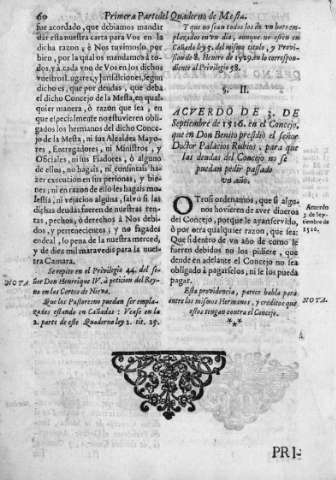 60 Primera Parte del Quaderno de Mesta.
fue acordado, que deviamos mandar
dar esta nuestra carta para Vos en la
dicha razon; è Nos tuvimoslo, por
bien, por la qual os mandamos à to-
dos, y à cada vno de Vos en los dichos
vuestros Lugares, y Jurisdiciones, segun
dicho es, que por deudas, que deba
el dicho Concejo de la Mesta, en qual-
quier manera, ò razon que sea, en
que especialmente no estuvieren obli-
gados los hermanos del dicho Conce-
jo de la Mesta, ni sus Alcaldes Mayo-
res, Entregadores, ni Ministros, y
Oficiales, ni sus Fiadores, ò alguno
de ellos, no hagais, ni consintais ha-
zer execucion en sus personas, y bie-
nes; ni en razon de ello les hagais mo-
lestia, ni vejacion alguna, salvo si las
dichas deudas fueren de nuestras ren-
tas, pechos, ò derechos à Nos debi-
dos, y pertenecientes; y no fagades
endeal, so pena de la nuestra merced,
y de diez mil maravedis para la nues-
tra Camara.
NOTA.
Se repite en el Privilegio 44. del se-
ñor Don Henrique IV. à peticion del Rey-
no en las Cortes de Nieva.
Que los Pastores no puedan ser empla-
zados estando en Cañadas: Vease en la
2. parte de este Quaderno ley 2. tit. 25.
Y que no sean todos los de vn
emplazados en vn dia, aunque no esten en
Cañada ley 5. del mismo titulo, y Provi-
sion de 8. Henero de 1529. en lo correspon-
diente al Privilegio 58.
§. II.
ACUERDO DE 3. DE
Septiembre de 1516. en el Concejo,
que en Don Benito presidiò el señor
Doctor Palacios Rubios, para que
las deudas del Concejo no se
puedan pedir passado
vn año.
Acuerdo 3 de Septiembre de 1516.
Otrosi ordenamos, que si algu-
nos hovieren de aver dineros
del Concejo, porque le ayan servido,
ò por otra qualquier razon, que sea:
Que si dentro de vn año de como le
fueren debidos no los pidiere, que
dende en adelante el Concejo no sea
obligado à pagarselos, ni se los pueda
pagar.
NOTA.
Esta providencia, parece habla para
entre los mismos Hermanos, y creditos que
estos tengan contra el Concejo.
***
PRI-